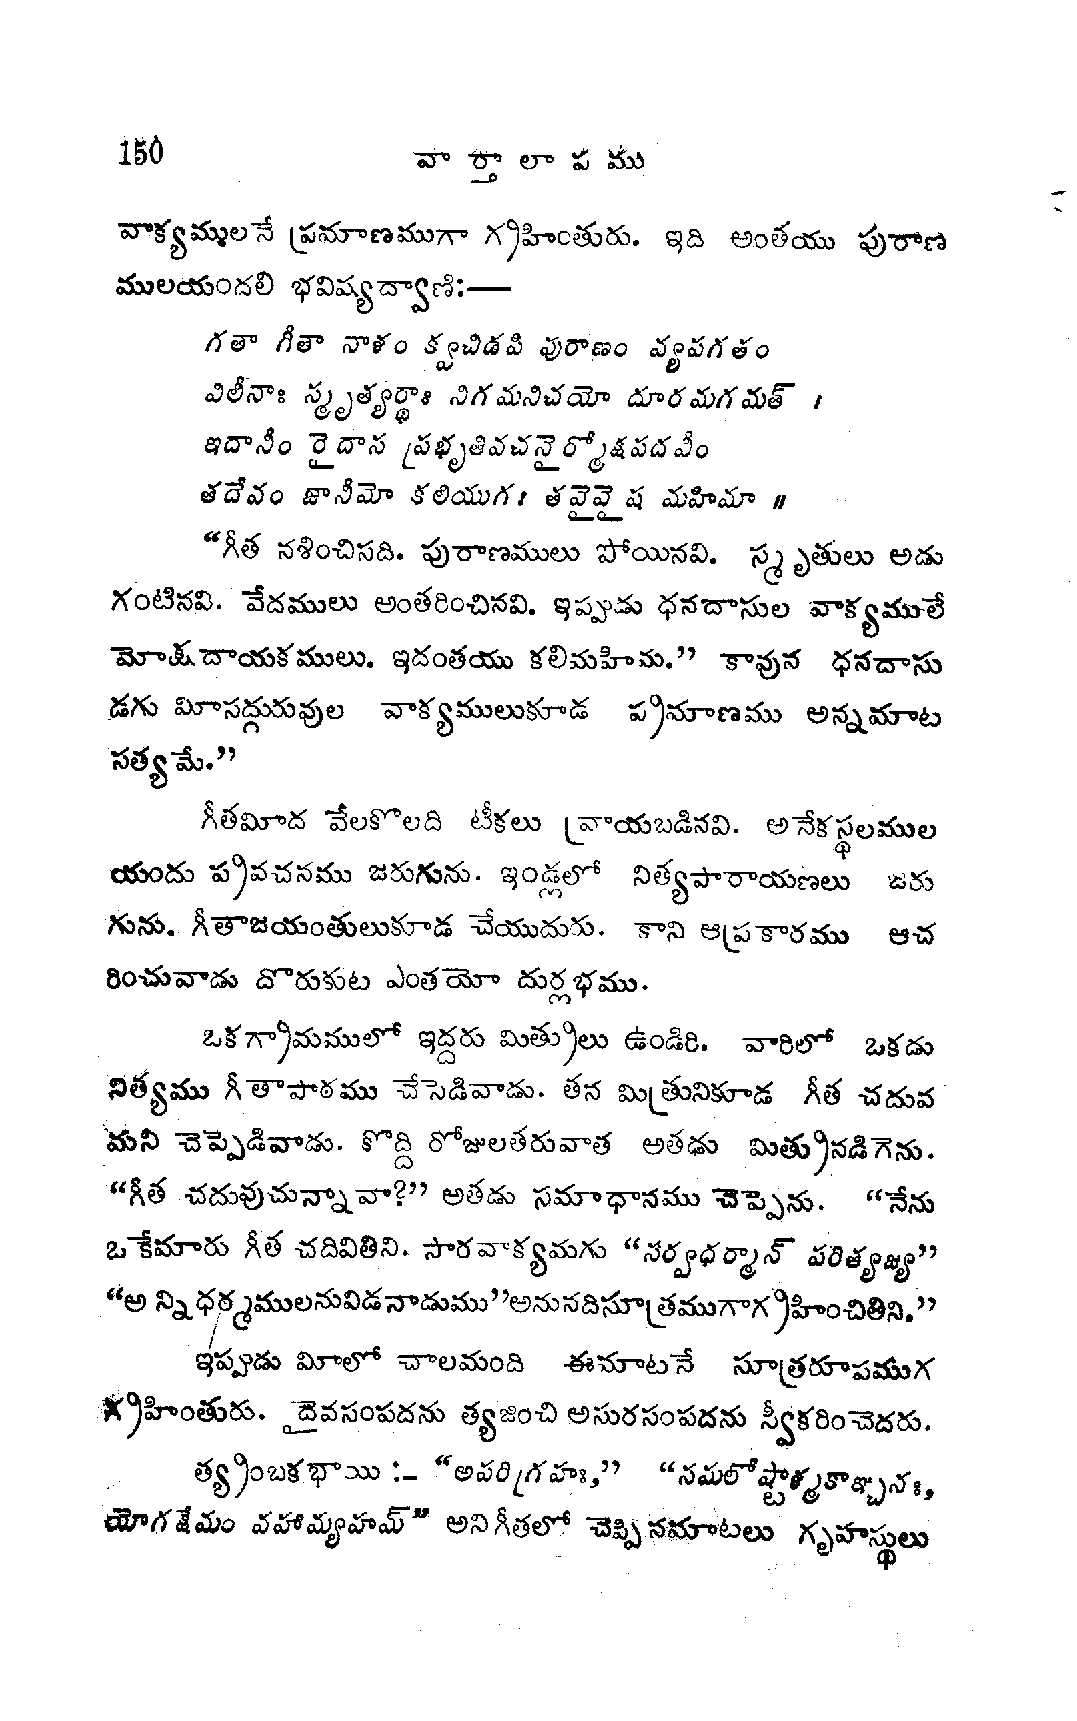 150
వా ర్తా లా ప ము
వాక్యమ్ములనే ప్రమాణముగా గ్రహింతురు. ఇది అంతయు పురాణ
ములయందలి భవిష్యద్వాణి:—
గతా గీతా నాశం క్వచిదపి పురాణం వ్యపగతం
విలీనాః స్మృత్యర్థాః నిగమనిచయో దూరమగమత్ ।
ఇదానీం రైదాస ప్రభృతివచనైర్మోక్షపదవీం
తదేవం జానీమో కలియుగ! తవైవైష మహిమా ॥
“గీత నశించిసది. పురాణములు పోయినవి. స్మృతులు అడు
గంటినవి. వేదములు అంతరించినవి. ఇప్పుడు ధనదాసుల వాక్యములే
మోక్షదాయకములు. ఇదంతయు కలిమహిమ.” కావున ధనదాసు
డగు మీసద్గురువుల వాక్యములుకూడ ప్రమాణము అన్నమాట
సత్యమే.”
గీతమీద వేలకొలది టీకలు వ్రాయబడినవి. అనేకస్థలముల
యందు ప్రవచనము జరుగును. ఇండ్లలో నిత్యపారాయణలు జరు
గును. గీతాజయంతులుకూడ చేయుదురు. కాని ఆప్రకారము ఆచ
రించువాడు దొరుకుట ఎంతయో దుర్లభము.
ఒకగ్రామములో ఇద్దరు మిత్రులు ఉండిరి. వారిలో ఒకడు
నిత్యము గీతాపాఠము చేసెడివాడు. తన మిత్రునికూడ గీత చదువ
మని చెప్పెడివాడు. కొద్ది రోజులతరువాత అతడు మిత్రునడిగెను.
“గీత చదువుచున్నావా?” అతడు సమాధానము చెప్పెను. “నేను
ఒకేమారు గీత చదివితిని. సారవాక్యమగు “సర్వధర్మాన్ పరిత్యజ్య”
“అన్నిధర్మములనువిడనాడుము”అనునదిసూత్రముగాగ్రహించితిని.”
ఇప్పుడు మీలో చాలమంది ఈమాటనే సూత్రరూపముగ
గ్రహింతురు. దైవసంపదను త్యజించి అసురసంపదను స్వీకరించెదరు.
త్ర్యంబకభాయి :– “అపరిగ్రహః,” “సమలోష్టాశ్మకాఞ్చనః,
యోగక్షేమం వహామ్యహమ్” అనిగీతలో చెప్పినమాటలు గృహస్థులు